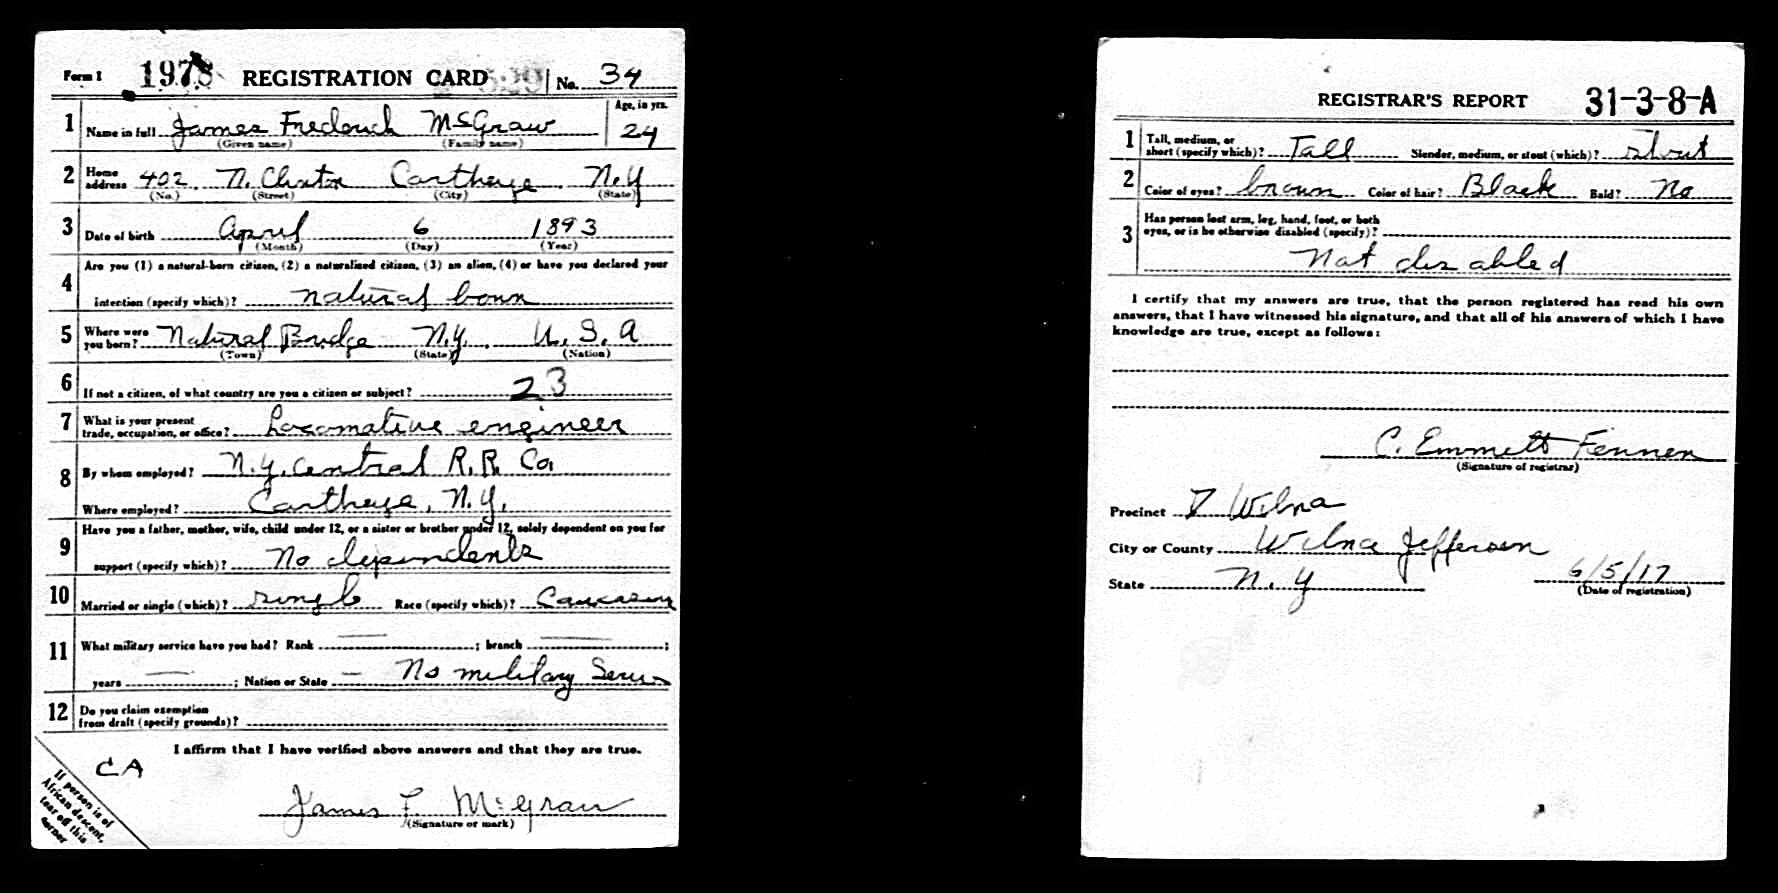 Form 1 1978 REGISTRATION CARD No. 34
1 Name in full James Frederick McGraw Age, in yrs. 24
(Given name) (Family name)
2 Home address 402 N. Clinton Carthage N.Y
(No.) (Street) (City) (State)
3 Date of birth April 6 1893
(Month) (Day) (Year)
4 Are you (1) a natural-born citizen, (2) a naturalized citizen, (3) an alien, (4) or have you declared your
intention (specify which)? natural born
5 Where were you born? Natural Bridge N.Y. U.S.A
(Town) (State) (Nation)
6 If not a citizen, of what country are you a citizen or subject? 23
7 What is your present
trade, occupation, or office? Locomative engineer
8 By whom employed? N.Y. Central R.R. Co.
Where employed? Carthage, N.Y.
9 Have you a father, mother, wife, child under 12, or a sister or brother under 12, solely dependent on you for
support (specify which)? No dependents
10 Married or single (which)? single Race (specify which)? Caucasian
11 What military service have you had? Rank — ; branch — ;
years — ; Nation or State — No military Serv
12 Do you claim exemption
from draft (specify grounds)?
I affirm that I have verified above answers and that they are true.
CA
If person is of
African descent,
tear off this
corner
James F. McGraw
(Signature or mark)
REGISTRAR'S REPORT 31-3-8-A
1 Tall, medium, or
short (specify which)? Tall Slender, medium, or stout (which)? stout
2 Color of eyes? brown Color of hair? Black Bald? No
3 Has person lost arm, leg, hand, foot, or both
eyes, or is he otherwise disabled (specify)?
Not disabled
I certify that my answers are true, that the person registered has read his own
answers, that I have witnessed his signature, and that all of his answers of which I have
knowledge are true, except as follows:
C. Emmett Fennen
(Signature of registrar)
Precinct Wilna
City or County Wilna Jefferson
State N.Y 6/5/17
(Date of registration)